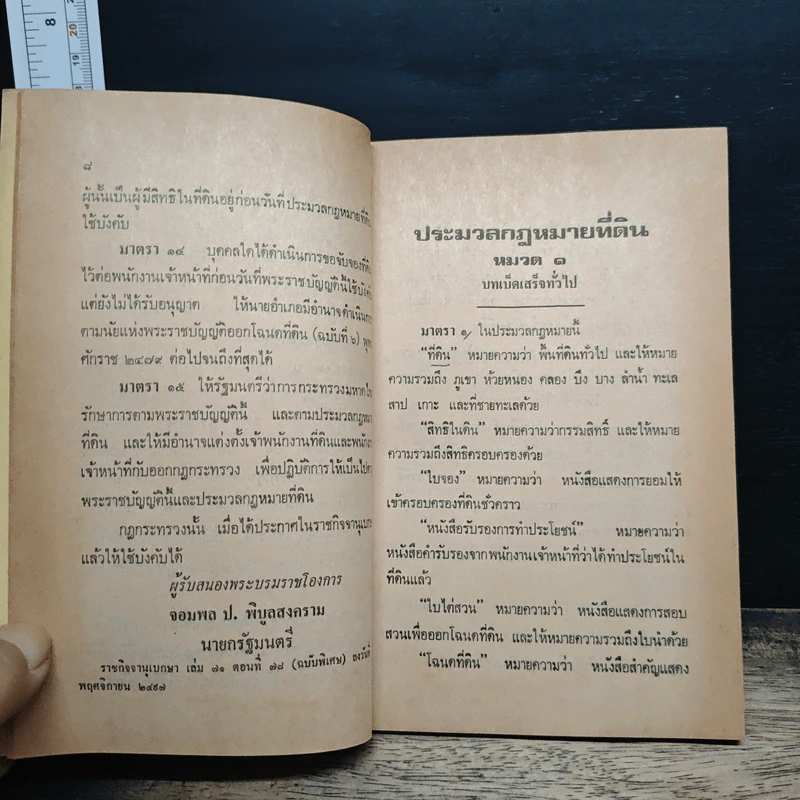 8
20
19
18
๘
ผู้นั้นเป็นผู้มีสิทธิในที่ดินอยู่ก่อนวันที่ประมวลกฎหมายที่ดิน
ใช้บังคับ
มาตรา ๑๔ บุคคลใดได้ดำเนินการขอจับจองที่ดิน
ไว้ต่อพนักงานเจ้าหน้าที่ก่อนวันที่พระราชบัญญัตินี้ใช้บังคับ
แต่ยังไม่ได้รับอนุญาต ให้นายอำเภอมีอำนาจดำเนินการ
ตามนัยแห่งพระราชบัญญัติออกโฉนดที่ดิน (ฉบับที่ ๖) พุท
ศักราช ๒๔๗๙ ต่อไปจนถึงที่สุดได้
มาตรา ๑๕ ให้รัฐมนตรีว่าการกระทรวงมหาดไทย
รักษาการตามพระราชบัญญัตินี้ และตามประมวลกฎหมาย
ที่ดิน และให้มีอำนาจแต่งตั้งเจ้าพนักงานที่ดินและพนักงาน
เจ้าหน้าที่กับออกกฎกระทรวง เพื่อปฏิบัติการให้เป็นไปตาม
พระราชบัญญัตินี้และประมวลกฎหมายที่ดิน
กฎกระทรวงนั้น เมื่อได้ประกาศในราชกิจจานุเบกษา
แล้วให้ใช้บังคับได้
ผู้รับสนองพระบรมราชโองการ
จอมพล ป. พิบูลสงคราม
นายกรัฐมนตรี
ราชกิจจานุเบกษา เล่ม ๗๑ ตอนที่ ๗๘ (ฉบับพิเศษ) ลงวันที่
พฤศจิกายน ๒๔๙๗
ประมวลกฎหมายที่ดิน
หมวด ๑
บทเบ็ดเสร็จทั่วไป
มาตรา ๑ ในประมวลกฎหมายนี้
“ที่ดิน” หมายความว่า พื้นที่ดินทั่วไป และให้หมาย
ความรวมถึง ภูเขา ห้วยหนอง คลอง บึง บาง ลำน้ำ ทะเล
สาป เกาะ และที่ชายทะเลด้วย
“สิทธิในดิน” หมายความว่ากรรมสิทธิ์ และให้หมาย
ความรวมถึงสิทธิครอบครองด้วย
“ใบจอง” หมายความว่า หนังสือแสดงการยอมให้
เข้าครอบครองที่ดินชั่วคราว
“หนังสือรับรองการทำประโยชน์” หมายความว่า
หนังสือคำรับรองจากพนักงานเจ้าหน้าที่ว่าได้ทำประโยชน์ใน
ที่ดินแล้ว
“ใบไต่สวน” หมายความว่า หนังสือแสดงการสอบ
สวนเพื่อออกโฉนดที่ดิน และให้หมายความรวมถึงใบนำด้วย
“โฉนดที่ดิน” หมายความว่า หนังสือสำคัญแสดง